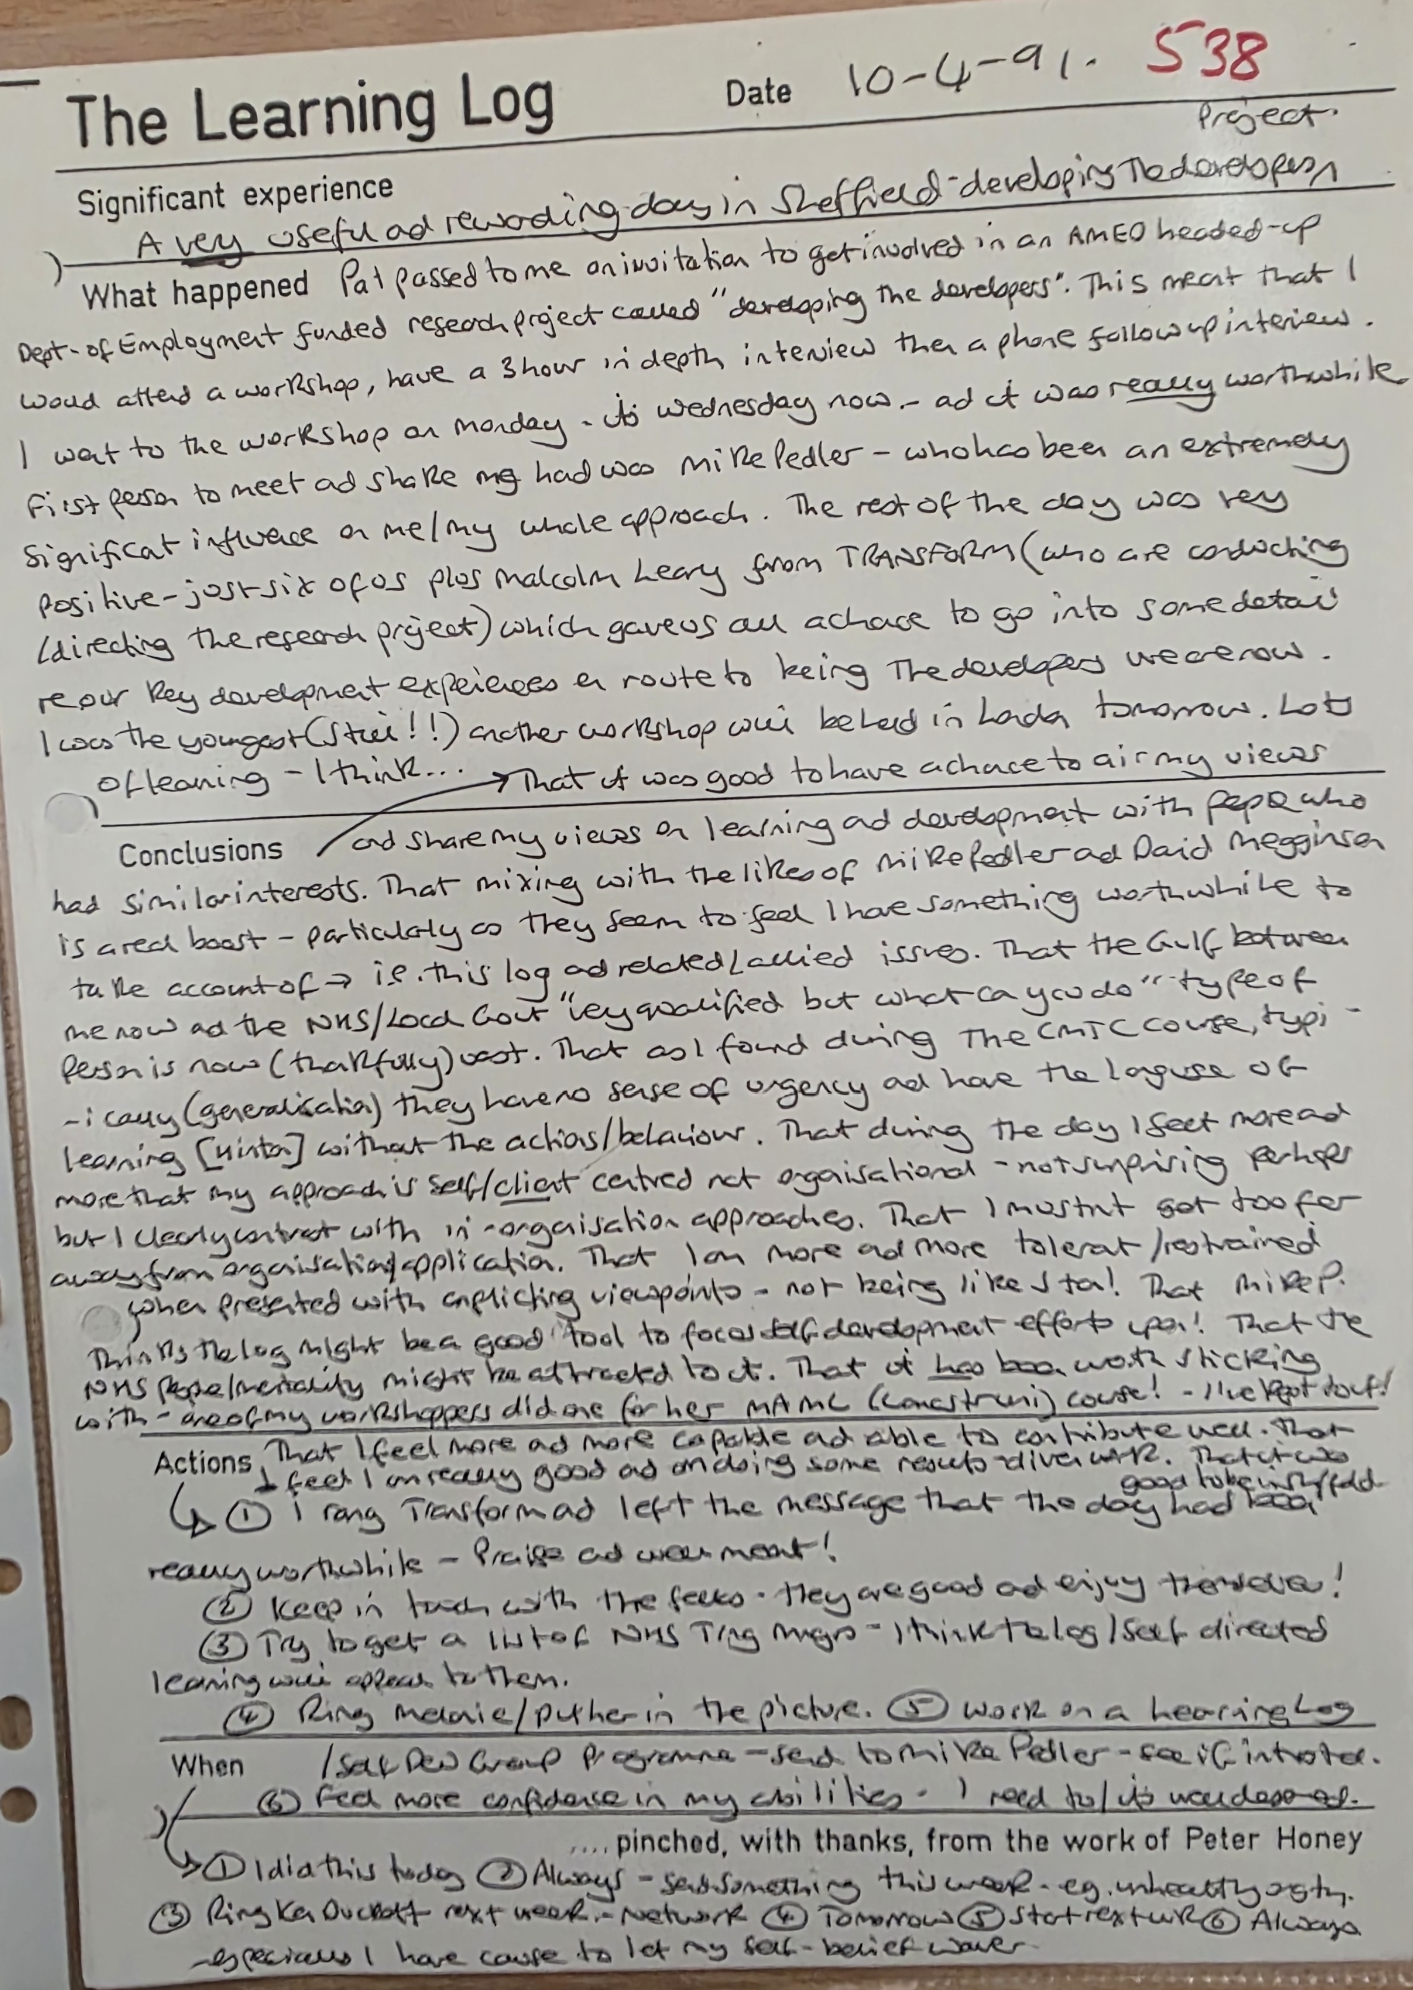 The Learning Log Date 10-4-91. 538
Project.
Significant experience
A very useful and rewarding day in Sheffield - developing The developers
What happened Pat passed to me an invitation to get involved in an AMED headed-up
Dept-of Employment funded research project called "developing the developers". This meant that I
would attend a workshop, have a 3 hour in depth interview then a phone follow up interview.
I went to the workshop on Monday - its Wednesday now - and it was really worthwhile
First person to meet and shake my hand was Mike Pedler - who has been an extremely
significant influence on me/my whole approach. The rest of the day was very
positive - just six of us plus Malcolm Leary from TRANSFORM (who are conducting
/directing the research project) which gave us all a chance to go into some detail
re our key development experiences en route to being The developers we are now.
I was the youngest (still!!) another workshop will be held in London tomorrow. Lots
of learning - I think... → That it was good to have a chance to air my views
Conclusions and share my views on learning and development with people who
had similar interests. That mixing with the likes of Mike Pedler and David Megginson
is a real boost - particularly as they seem to feel I have something worthwhile to
take account of → i.e. this log and related/allied issues. That the Gulf between
me now and the NHS/Local Govt "very qualified but what can you do" type of
person is now (thankfully) vast. That as I found during The CMTC course, typi-
-ically (generalisation) they have no sense of urgency and have the language of
learning without the actions/behaviour. That during the day I feel more and
more that my approach is self/client centred not organisational - not surprising perhaps
but I clearly contrast with in-organisation approaches. That I mustnt get too far
away from organisational application. That I am more and more tolerant/restrained
when presented with conflicting viewpoints - not being like Stan! That Mike P.
Thinks the log might be a good tool to focus self development efforts upon! That the
NHS people/mentality might be attracted to it. That it has been worth sticking
with - one of my workshoppers did one for her MAML (Lancs Uni) course! - I've kept to it!
Actions That I feel more and more capable and able to contribute well. That
I feel I am really good and doing some work. That it was
good to be in Sheffield
① I rang Transform and left the message that the day had been
really worthwhile - Praise and well meant!
② Keep in touch with the folks - they are good and enjoy themselves!
③ Try to get a list of NHS Trng Mngrs - I think the log/self directed
learning will appeal to them.
④ Ring Melanie/put her in the picture. ⑤ Work on a Learning Log
When /Self Dev Group Programme - send to Mike Pedler - see if interested.
⑥ Feel more confidence in my abilities - I need to/its well deserved.
....pinched, with thanks, from the work of Peter Honey
① I did this today ② Always - send something this week - eg. unhealthy
③ Ring Ken next week - Network ④ Tomorrow ⑤ Start next wk ⑥ Always
-especially I have cause to let my self-belief waver.